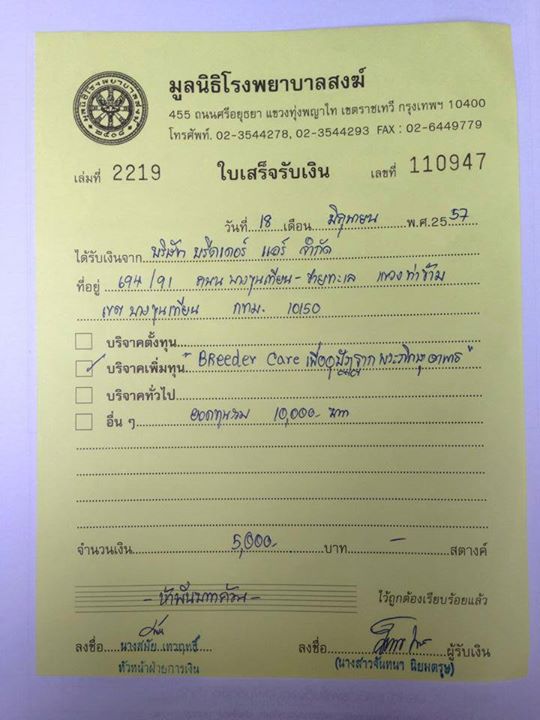 มูลนิธิโรงพยาบาลสงฆ์
455 ถนนศรีอยุธยา แขวงทุ่งพญาไท เขตราชเทวี กรุงเทพฯ 10400
โทรศัพท์. 02-3544278, 02-3544293 FAX : 02-6449779
เล่มที่ 2219 ใบเสร็จรับเงิน เลขที่ 110947
วันที่ 18 เดือน มิถุนายน พ.ศ.2557
ได้รับเงินจาก บริษัท บรีดเดอร์ แคร์ จำกัด
ที่อยู่ 694/91 ถนน บางขุนเทียน-ชายทะเล แขวง ท่าข้าม
เขต บางขุนเทียน กทม. 10150
บริจาคตั้งทุน
บริจาคเพิ่มทุน "Breeder Care เพื่ออุปัฏฐาก พระภิกษุอาพาธ"
บริจาคทั่วไป
อื่น ๆ ยอดทุนรวม 10,000.- บาท
จำนวนเงิน 5,000.- บาท - สตางค์
- ห้าพันบาทถ้วน - ไว้ถูกต้องเรียบร้อยแล้ว
ลงชื่อ ลงชื่อ ผู้รับเงิน
นางสมัย เทวฤทธิ์ (นางสาวจันทนา นิยมตรุษ)
หัวหน้าฝ่ายการเงิน